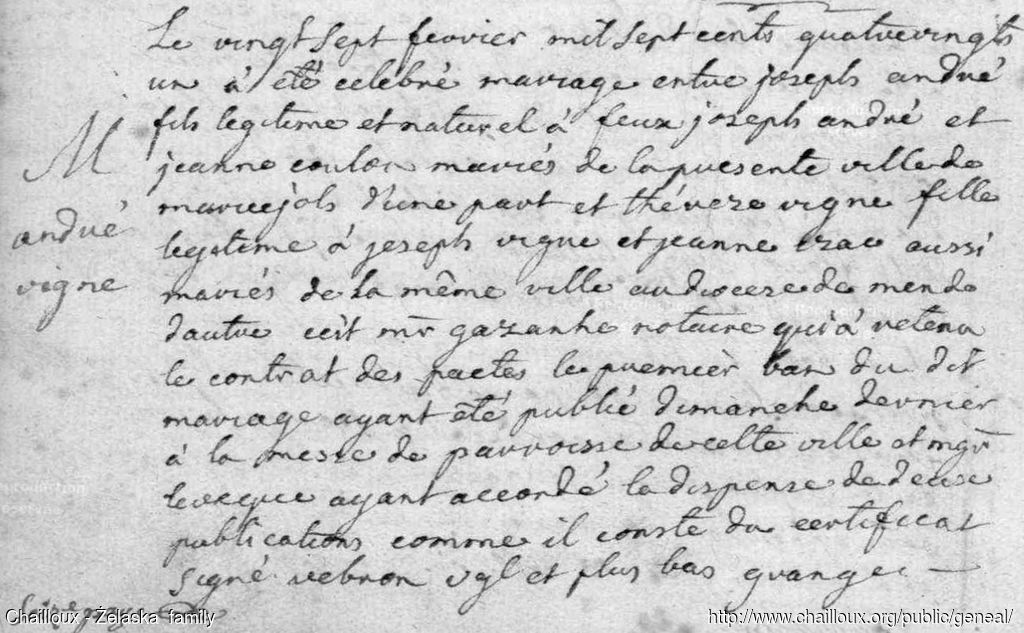 Le vingt sept fevrier mil sept cents quatrevingts
un à été celebré mariage entre joseph andré
fils legitime et naturel à feux joseph andré et
jeanne coulon mariés de la presente ville de
M
maruejols d'une part et thereze vigne fille
andré
legitime à joseph vigne et jeanne crac aussi
vigne
mariés de la même ville au diocese de mende
dautre ceit mr gazanhe notaire qui à retenu
le contrat des pactes le premier ban du dit
mariage ayant été publié dimanche dernier
à la messe de parroisse de cette ville et mgr
leveque ayant accordé la dispense de deux
publications comme il conste du certificat
signé vebron vgl et plus bas grange
Chailloux - Żelaska family
http://www.chailloux.org/public/geneal/